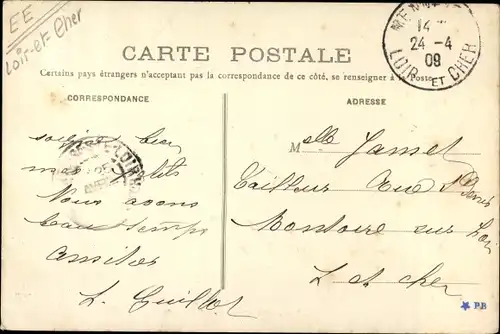 EE
Loir-et-Cher
MEN
14
24 - 4
09
LOIR ET CHER
CARTE POSTALE
Certains pays étrangers n'acceptant pas la correspondance de ce côté, se renseigner à la Poste
CORRESPONDANCE
ADRESSE
soignes bien
mes petits
Nous avons
beau temps
amitiés
L. Guillot
Melle Jamet
Tailleur Rue St Denis
Montoire sur Loir
L et Cher
PB